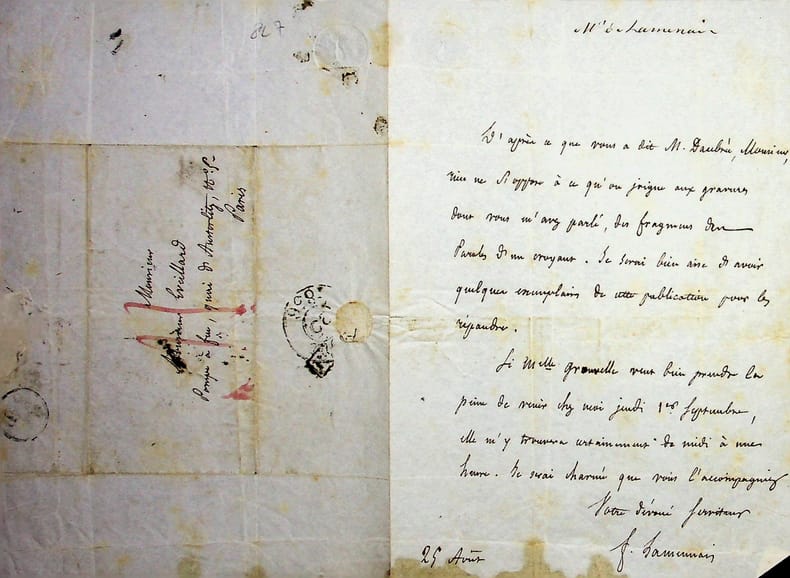 827
Monsieur
Monsieur Vieillard
Pompe à feu, quai d'Austerlitz, n°
Paris
Mr de Lamennais
D'après ce que vous a dit M. Daubrée, Monsieur,
rien ne s'oppose à ce qu'on joigne aux gravures
dont vous m'avez parlé, des fragmens des
Paroles d'un croyant. Je serai bien aise d'avoir
quelques exemplaires de cette publication pour les
répandre.
Si Melle Grouvelle veut bien prendre la
peine de venir chez moi jeudi 1er Septembre,
elle m'y trouvera certainement de midi à une
heure. Je serai charmé que vous l'accompagniez
Votre dévoué serviteur
F. Lamennais
25 Août